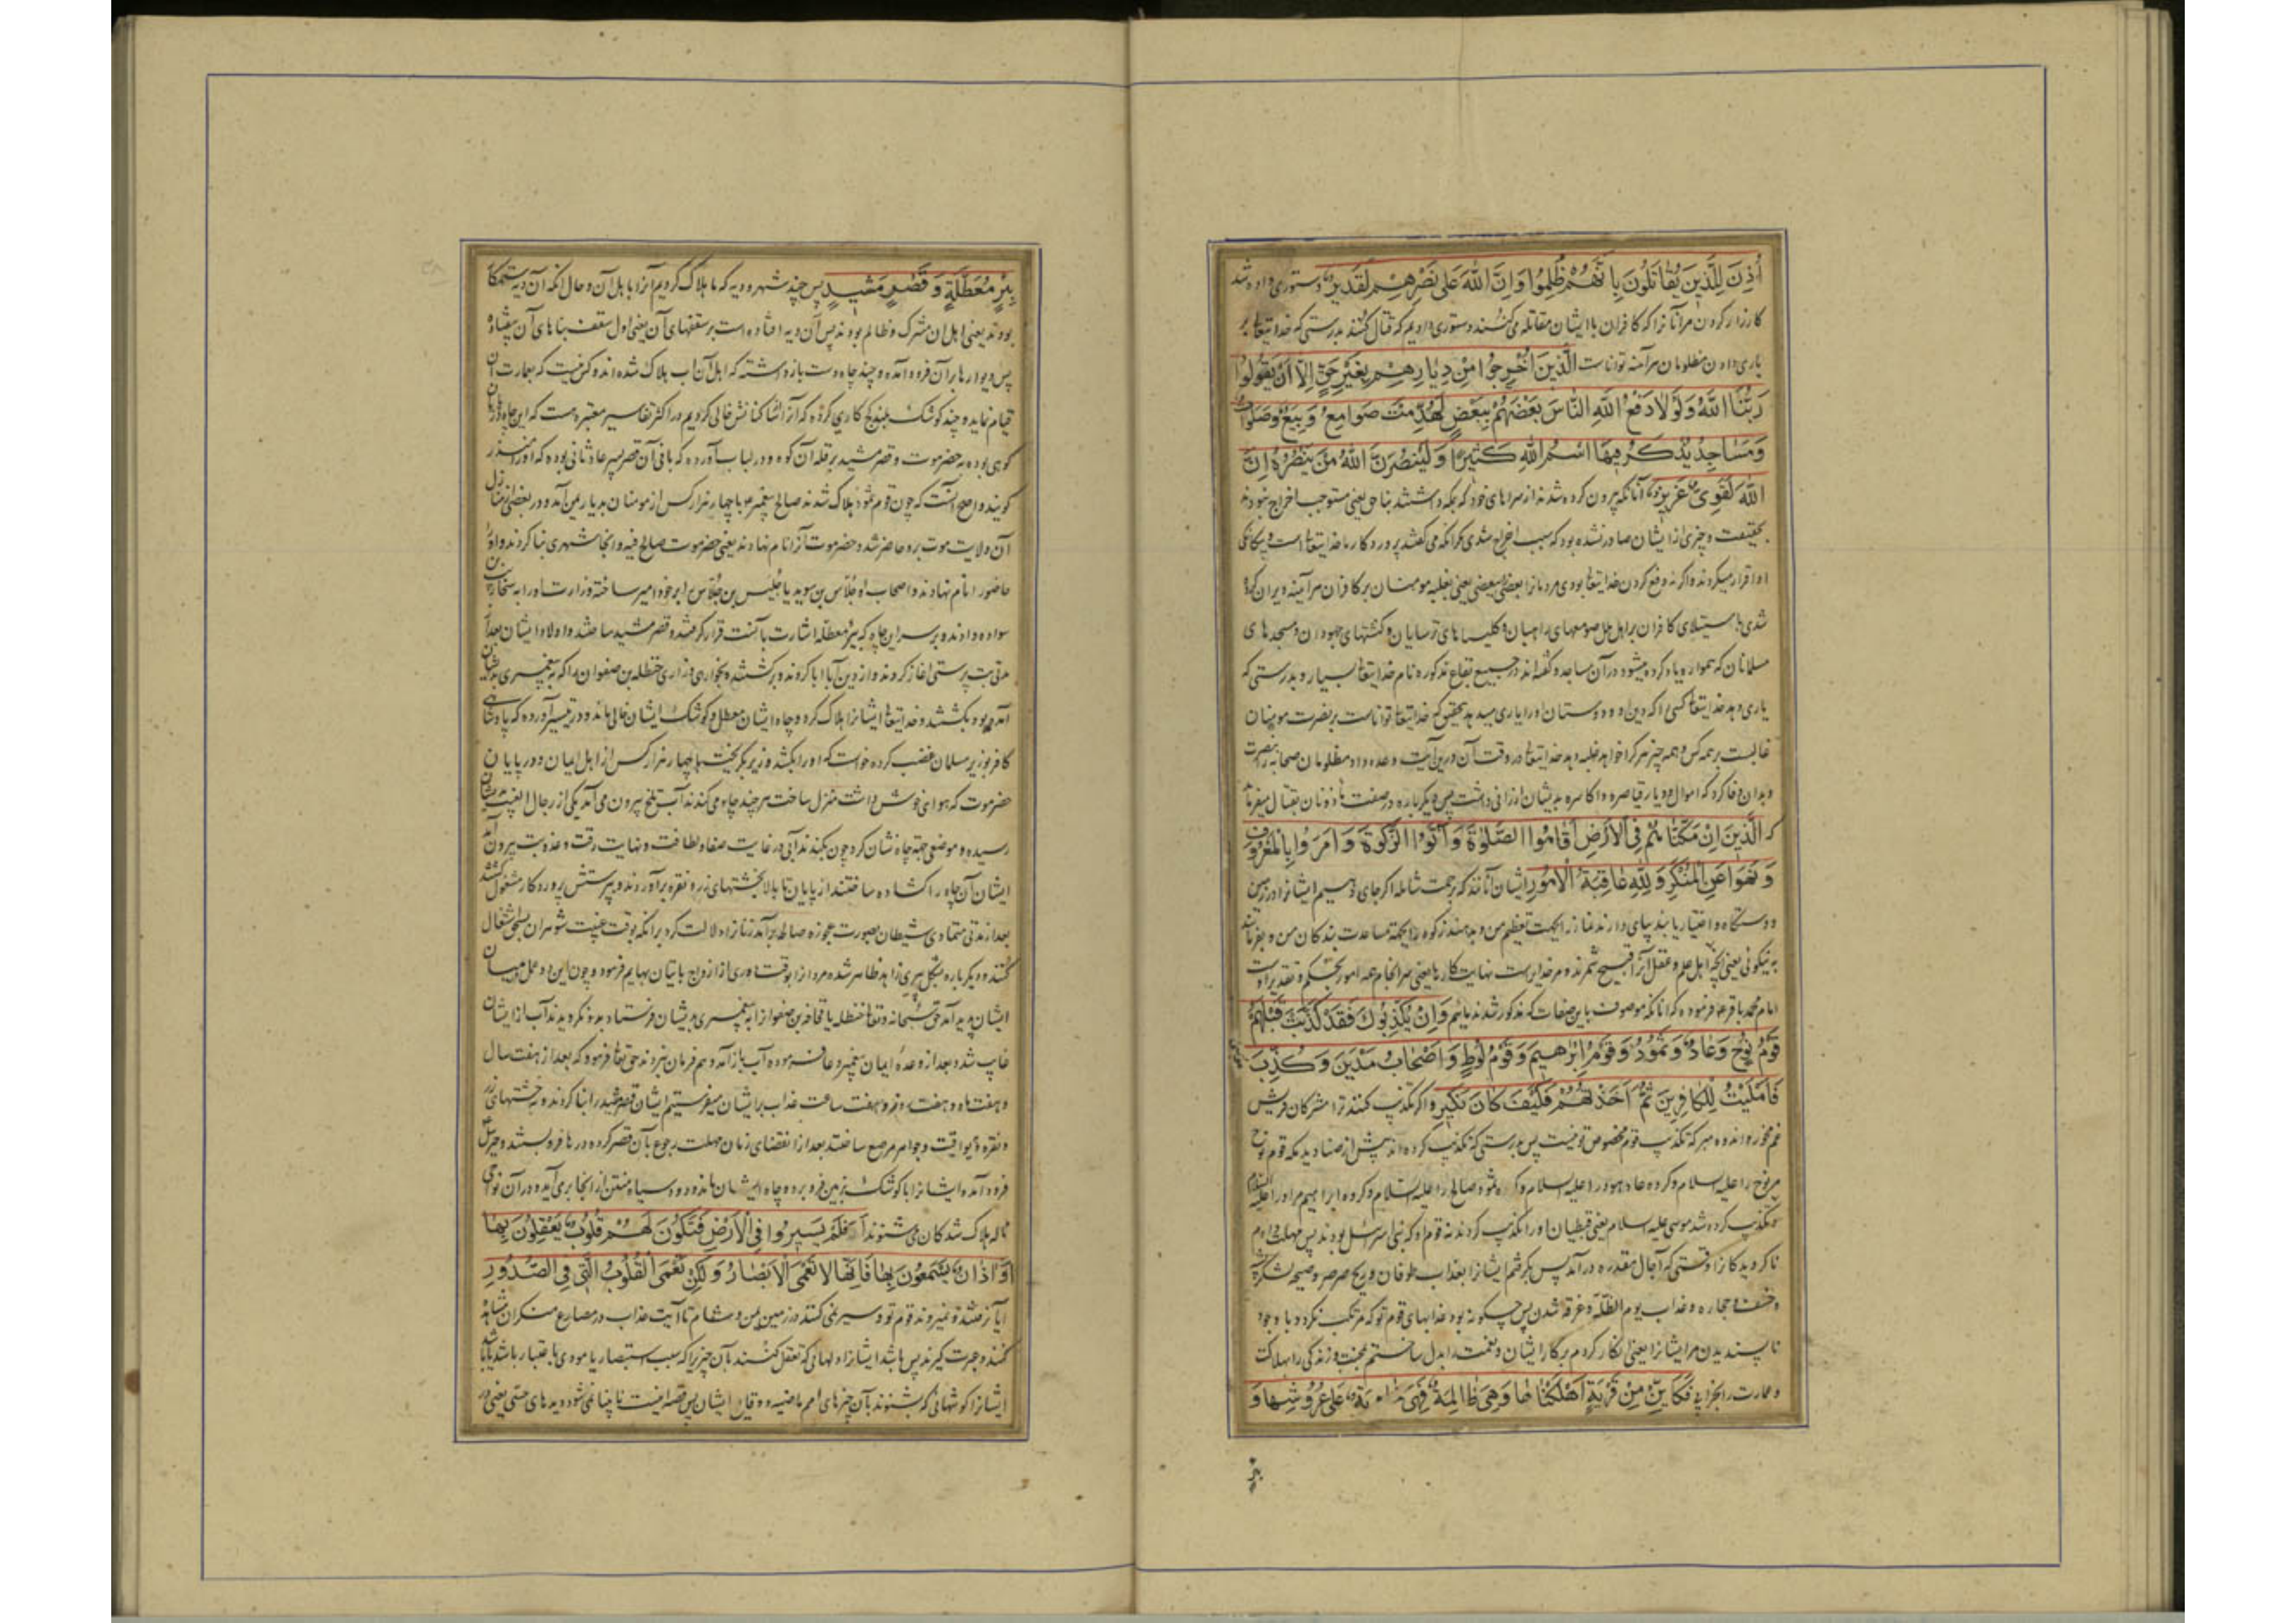 أُذِنَ لِلَّذِينَ يُقَاتَلُونَ بِأَنَّهُمْ ظُلِمُوا وَإِنَّ اللَّهَ عَلَى نَصْرِهِمْ لَقَدِيرٌ دستوری داده شد
کارزار کردن مر آنانرا که کافران با ایشان مقاتله می کنند دستوری دادیم که قتال کنند بدرستی که خدایتعا بر
یاری دادن مظلومان هرآینه تواناست الَّذِينَ أُخْرِجُوا مِنْ دِيَارِهِمْ بِغَيْرِ حَقٍّ إِلَّا أَنْ يَقُولُوا
رَبُّنَا اللَّهُ وَلَوْلَا دَفْعُ اللَّهِ النَّاسَ بَعْضَهُمْ بِبَعْضٍ لَهُدِّمَتْ صَوَامِعُ وَبِيَعٌ وَصَلَوَاتٌ
وَمَسَاجِدُ يُذْكَرُ فِيهَا اسْمُ اللَّهِ كَثِيرًا وَلَيَنْصُرَنَّ اللَّهُ مَنْ يَنْصُرُهُ إِنَّ
اللَّهَ لَقَوِيٌّ عَزِيزٌ آنانکه بیرون کرده شدند از سراهای خود که بمکه داشتند بناحق یعنی مستوجب اخراج نبودند
بحقیقت و چیزی از ایشان صادر نشده بود که سبب اخراج شدی مگر آنکه می گفتند پروردگار ما خدایتعا است و بیگانگی
او اقرار میکردند و اگر نه دفع کردن خدایتعا بودی مردمانرا بعضی ببعضی یعنی بغلبه مومنان بر کافران هرآینه ویران کرده
شدی باستیلای کافران بر اهل ملل صومعهای راهبان و کلیساهای ترسایان و کنشتهای جهودان و مسجدهای
مسلمانان که همواره یاد کرده میشود در آن مساجد و گفته اند در جمیع بقاع مذکوره نام خدایتعا بسیار و بدرستی که
یاری دهد خدایتعا کسی را که دین او و دوستان او را یاری میدهد بتحقیق که خدایتعا تواناست بر نصرت مومنان
غالبست بر همه کس و همه چیز هر کرا خواهد غلبه دهد خدایتعا در وقت آن درین آیت وعده داد مظلومان صحابه را بنصرت
و بدان وفا کرد که اموال و دیار قیاصره و اکاسره بدیشان ارزانی داشت پس دیگر باره در صفت ماذونان بقتال میفرماید
که الَّذِينَ إِنْ مَكَّنَّاهُمْ فِي الْأَرْضِ أَقَامُوا الصَّلَوٰةَ وَآتَوُا الزَّكَوٰةَ وَأَمَرُوا بِالْمَعْرُوفِ
وَنَهَوْا عَنِ الْمُنْكَرِ وَلِلَّهِ عَاقِبَةُ الْأُمُورِ ایشان آنانند که برحمت شامله اگر جای دهیم ایشانرا در زمین
و دستگاه و اختیار یابند بپای دارند نماز را بجهت تعظیم من و بدهند زکوة را بجهة مساعدت بندگان من و بفرمایند
به نیکوئی یعنی آنچه اهل علم و عقل آنرا قبیح شمرند و مر خدایراست نهایت کارها یعنی سرانجام همه امور بحکم و تقدیر اوست
امام محمد باقر فرموده که آنانکه موصوف باین صفات که مذکور شد ندمائیم وَإِنْ يُكَذِّبُوكَ فَقَدْ كَذَّبَتْ قَبْلَهُمْ
قَوْمُ نُوحٍ وَعَادٌ وَثَمُودُ وَقَوْمُ إِبْرَاهِيمَ وَقَوْمُ لُوطٍ وَأَصْحَابُ مَدْيَنَ وَكُذِّبَ
فَأَمْلَيْتُ لِلْكَافِرِينَ ثُمَّ أَخَذْتُهُمْ فَكَيْفَ كَانَ نَكِيرِ و اگر تکذیب کنند ترا مشرکان قریش
غم مخور و اندوه مبر که تکذیب قوم مخصوص تو نیست پس بدرستی که تکذیب کرده اند پیش از صنادید مکه قوم نوح
مر نوح را علیه السلام و گروه عاد هود را علیه السلام و گروه ثمود صالح را علیه السلام و گروه ابراهیم مر او را علیه السلام
و تکذیب کرده شد موسی علیه السلام یعنی قبطیان او را تکذیب کردند نه قوم او که بنی اسرائیل بودند پس مهلت دادم
ناگرویدگانرا تا وقتی که آجال مقدره در آمد پس بگرفتم ایشانرا بعذاب طوفان و ریح صرصر و صیحه
و خسف و حجاره و عذاب یوم الظلة و غرقه شدن پس چگونه بود عذابهای قوم تو که مرتکب نکردد با وجود
ناپسندیدن مر ایشانرا یعنی انکار کردم بر کار ایشان و نعمت را بدل ساختم بمحنت و زندگی را بهلاکت
و عمارت را بخرابی فَكَأَيِّنْ مِنْ قَرْيَةٍ أَهْلَكْنَاهَا وَهِيَ ظَالِمَةٌ فَهِيَ خَاوِيَةٌ عَلَى عُرُوشِهَا وَ
بئر
بِئْرٍ مُعَطَّلَةٍ وَقَصْرٍ مَشِيدٍ پس چند شهر و دیه که ما هلاک کردیم آنرا با اهل آن و حال آنکه آن دیه ستمکار
بودند یعنی اهل آن مشرک و ظالم بودند پس آن دیه افتاده است بر سقفهای آن یعنی اول سقف بناهای آن بیفتاده
پس دیوارها بر آن فرود آمده و چند چاه دست بازداشته که اهل آن آب هلاک شده اند و کس نیست که بعمارت آن
قیام نماید و چند کوشک بلند گچ کاری کرده که آنرا از ساکنانش خالی کردیم در اکثر تفاسیر معتبره هست که این چاه در دامن
کوهی بوده به حضرموت و قصر مشید بر قله آن کوه و در لباب آورده که بانی آن قصر پسر عاد ثانی بوده که او را منذر
گویند و اصح آنست که چون قوم ثمود هلاک شدند صالح پیغمبر با چهار هزار کس از مومنان بدیار یمن آمد و در بعضی از منازل
آن ولایت موت برو حاضر شد و حضرموت آنرا نام نهادند یعنی حضرموت صالح فیه و آنجا شهری بنا کردند و او را
حاضورا نام نهادند و اصحاب او جلاس بن سوید یا جلیس بن جلاس را بر خود امیر ساخته وزارت او را به سنحاریب بن
سواده دادند و بر سر این چاه که بئر معطله اشارت بآنست قرار گرفتند و قصر مشید ساختند و اولاد ایشان بعد از
مدتی بت پرستی اغاز کردند و از دین آبا ابا کردند و برگشتند و بخواری و زاری حنظله بن صفوان را که به پیغمبری بدیشان
آمده بود بکشتند و خدایتعا ایشانرا هلاک کرد و چاه ایشان معطل و کوشک ایشان خالی ماند و در تیسیر آورده که پادشاهی
کافر بوزیر مسلمان غضب کرده خواست که او را بکشد وزیر بگریخت با چهار هزار کس از اهل ایمان و در پایان
حضرموت که هوای خوش داشت منزل ساخت هر چند چاه می کندند آب تلخ بیرون می آمد یکی از رجال الغیب بدیشان
رسیده و موضعی جهة چاه نشان کرد چون بکندند آبی در غایت صفا و لطافت و نهایت رقت و عذوبت بیرون آمد
ایشان آن چاه را گشاده ساختند از پایان تا بالا بخشتهای زر و نقره برآوردند و بپرستش پروردگار مشغول گشتند
بعد از مدتی متمادی شیطان بصورت عجوزه صالحه برآمد زنانرا دلالت کرد بر آنکه بوقت غیبت شوهران بسحق اشتغال
کنند و دیگر باره بشکل پیری زاهد ظاهر شده مردانرا بوقت دوری از ازواج باتیان بهایم فرمود و چون این دو عمل در میان
ایشان پدید آمد حق سبحانه و تعا حنظله یا قحافه بن صفوانرا به پیغمبری بدیشان فرستاد بدو نگرویدند آب از ایشان
غایب شد و بعد از وعده ایمان پیغمبر دعا فرموده آب باز آمد و هم فرمان نبردند حق تعا فرمود که بعد از هفت سال
و هفت ماه و هفت روز و هفت ساعت عذاب بر ایشان میفرستیم ایشان قصر مشید را بنا کردند و به خشتهای زر
و نقره و یواقیت و جواهر مرصع ساختند بعد از انقضای زمان مهلت رجوع بآن قصر کرده درها فرو بستند و جبرئیل
فرود آمد و ایشانرا با کوشک بزمین فرو برد و چاه ایشان ماند و دود سیاه منتن از آنجا بر می آید و در آن نواحی
ناله هلاک شدگان می شنوند أَفَلَمْ يَسِيرُوا فِي الْأَرْضِ فَتَكُونَ لَهُمْ قُلُوبٌ يَعْقِلُونَ بِهَا
أَوْ آذَانٌ يَسْمَعُونَ بِهَا فَإِنَّهَا لَا تَعْمَى الْأَبْصَارُ وَلَكِنْ تَعْمَى الْقُلُوبُ الَّتِي فِي الصُّدُورِ
ایا نرفتند و نمیروند قوم تو و سیر نمی کنند در زمین یمن و شام تا آیت عذاب در مصارع منکران مشاهده
کنند و عبرت گیرند پس باشد ایشانرا دلهائی که تعقل کنند بآن چیزیرا که سبب استبصار یا مودی باعتبار باشد یا باشد
ایشانرا گوشهائی که بشنوند بآن چیزهای امم ماضیه و وقایع ایشان پس قصه اینست نابینا نمی شود دیدهای حسی یعنی در